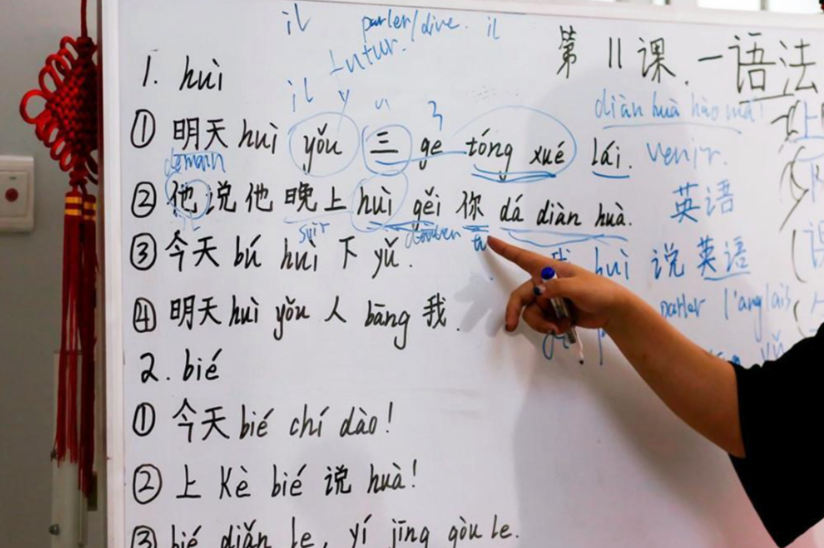 il parler/dire. il
futur.
第 11 课. 一语法
1. huì
il y
diàn huà hào mǎ!
① 明天 huì yǒu 三 ge tóng xué lái. venir.
demain
② 他说他晚上 huì gěi 你 dá diàn huà. 英语
soir tu
③ 今天 bú huì 下 yǔ. 我 huì 说英语
④ 明天 huì yǒu 人 bāng 我. parler l'anglais
2. bié
① 今天 bié chí dào!
② 上 Kè bié 说 huà!
③ bié diǎn le, yí jīng gòu le.